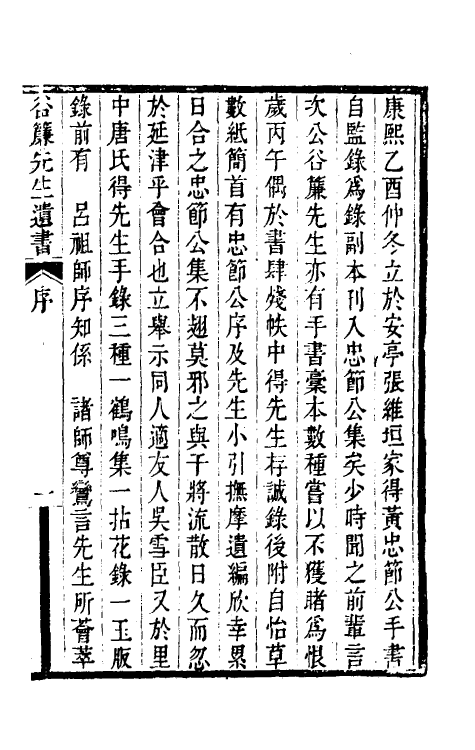 康熙乙酉仲冬立於安亭張維垣家得黃忠節公手書
自監錄爲錄副本刊入忠節公集矣少時聞之前輩言
次公谷簾先生亦有手書稾本數種嘗以不獲睹爲恨
歲丙午偶於書肆殘帙中得先生存誠錄後附自怡草
數紙簡首有忠節公序及先生小引撫摩遺編欣幸累
日合之忠節公集不翅莫邪之與干將流散日久而忽
於延津乎會合也立舉示同人適友人吳雪臣又於里
中唐氏得先生手錄三種一鶴鳴集一拈花錄一玉版
錄前有　呂祖師序知係　諸師尊鸞言先生所薈萃
谷簾先生遺書　序　一